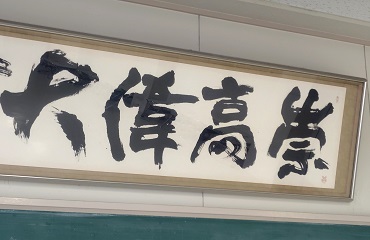 崇高偉大